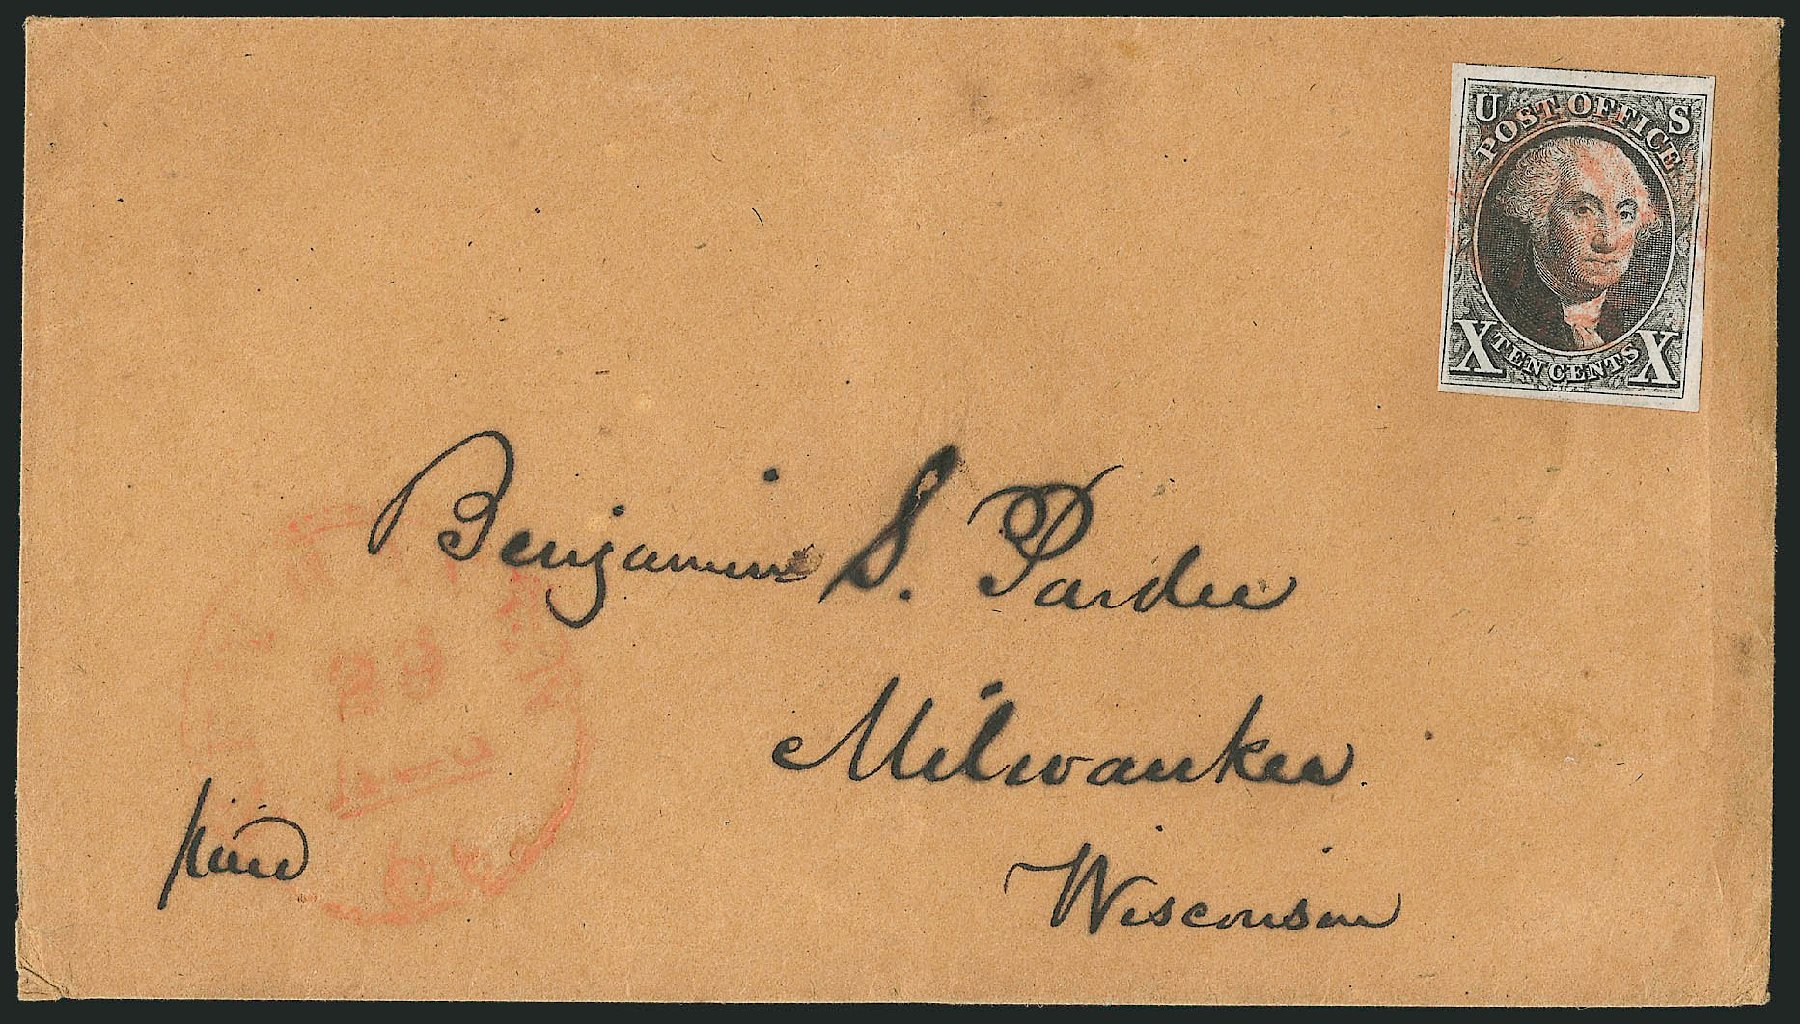 U S
POST OFFICE
X TEN CENTS X
Benjamin S. Pardee
Milwaukee
Wisconsin
paid